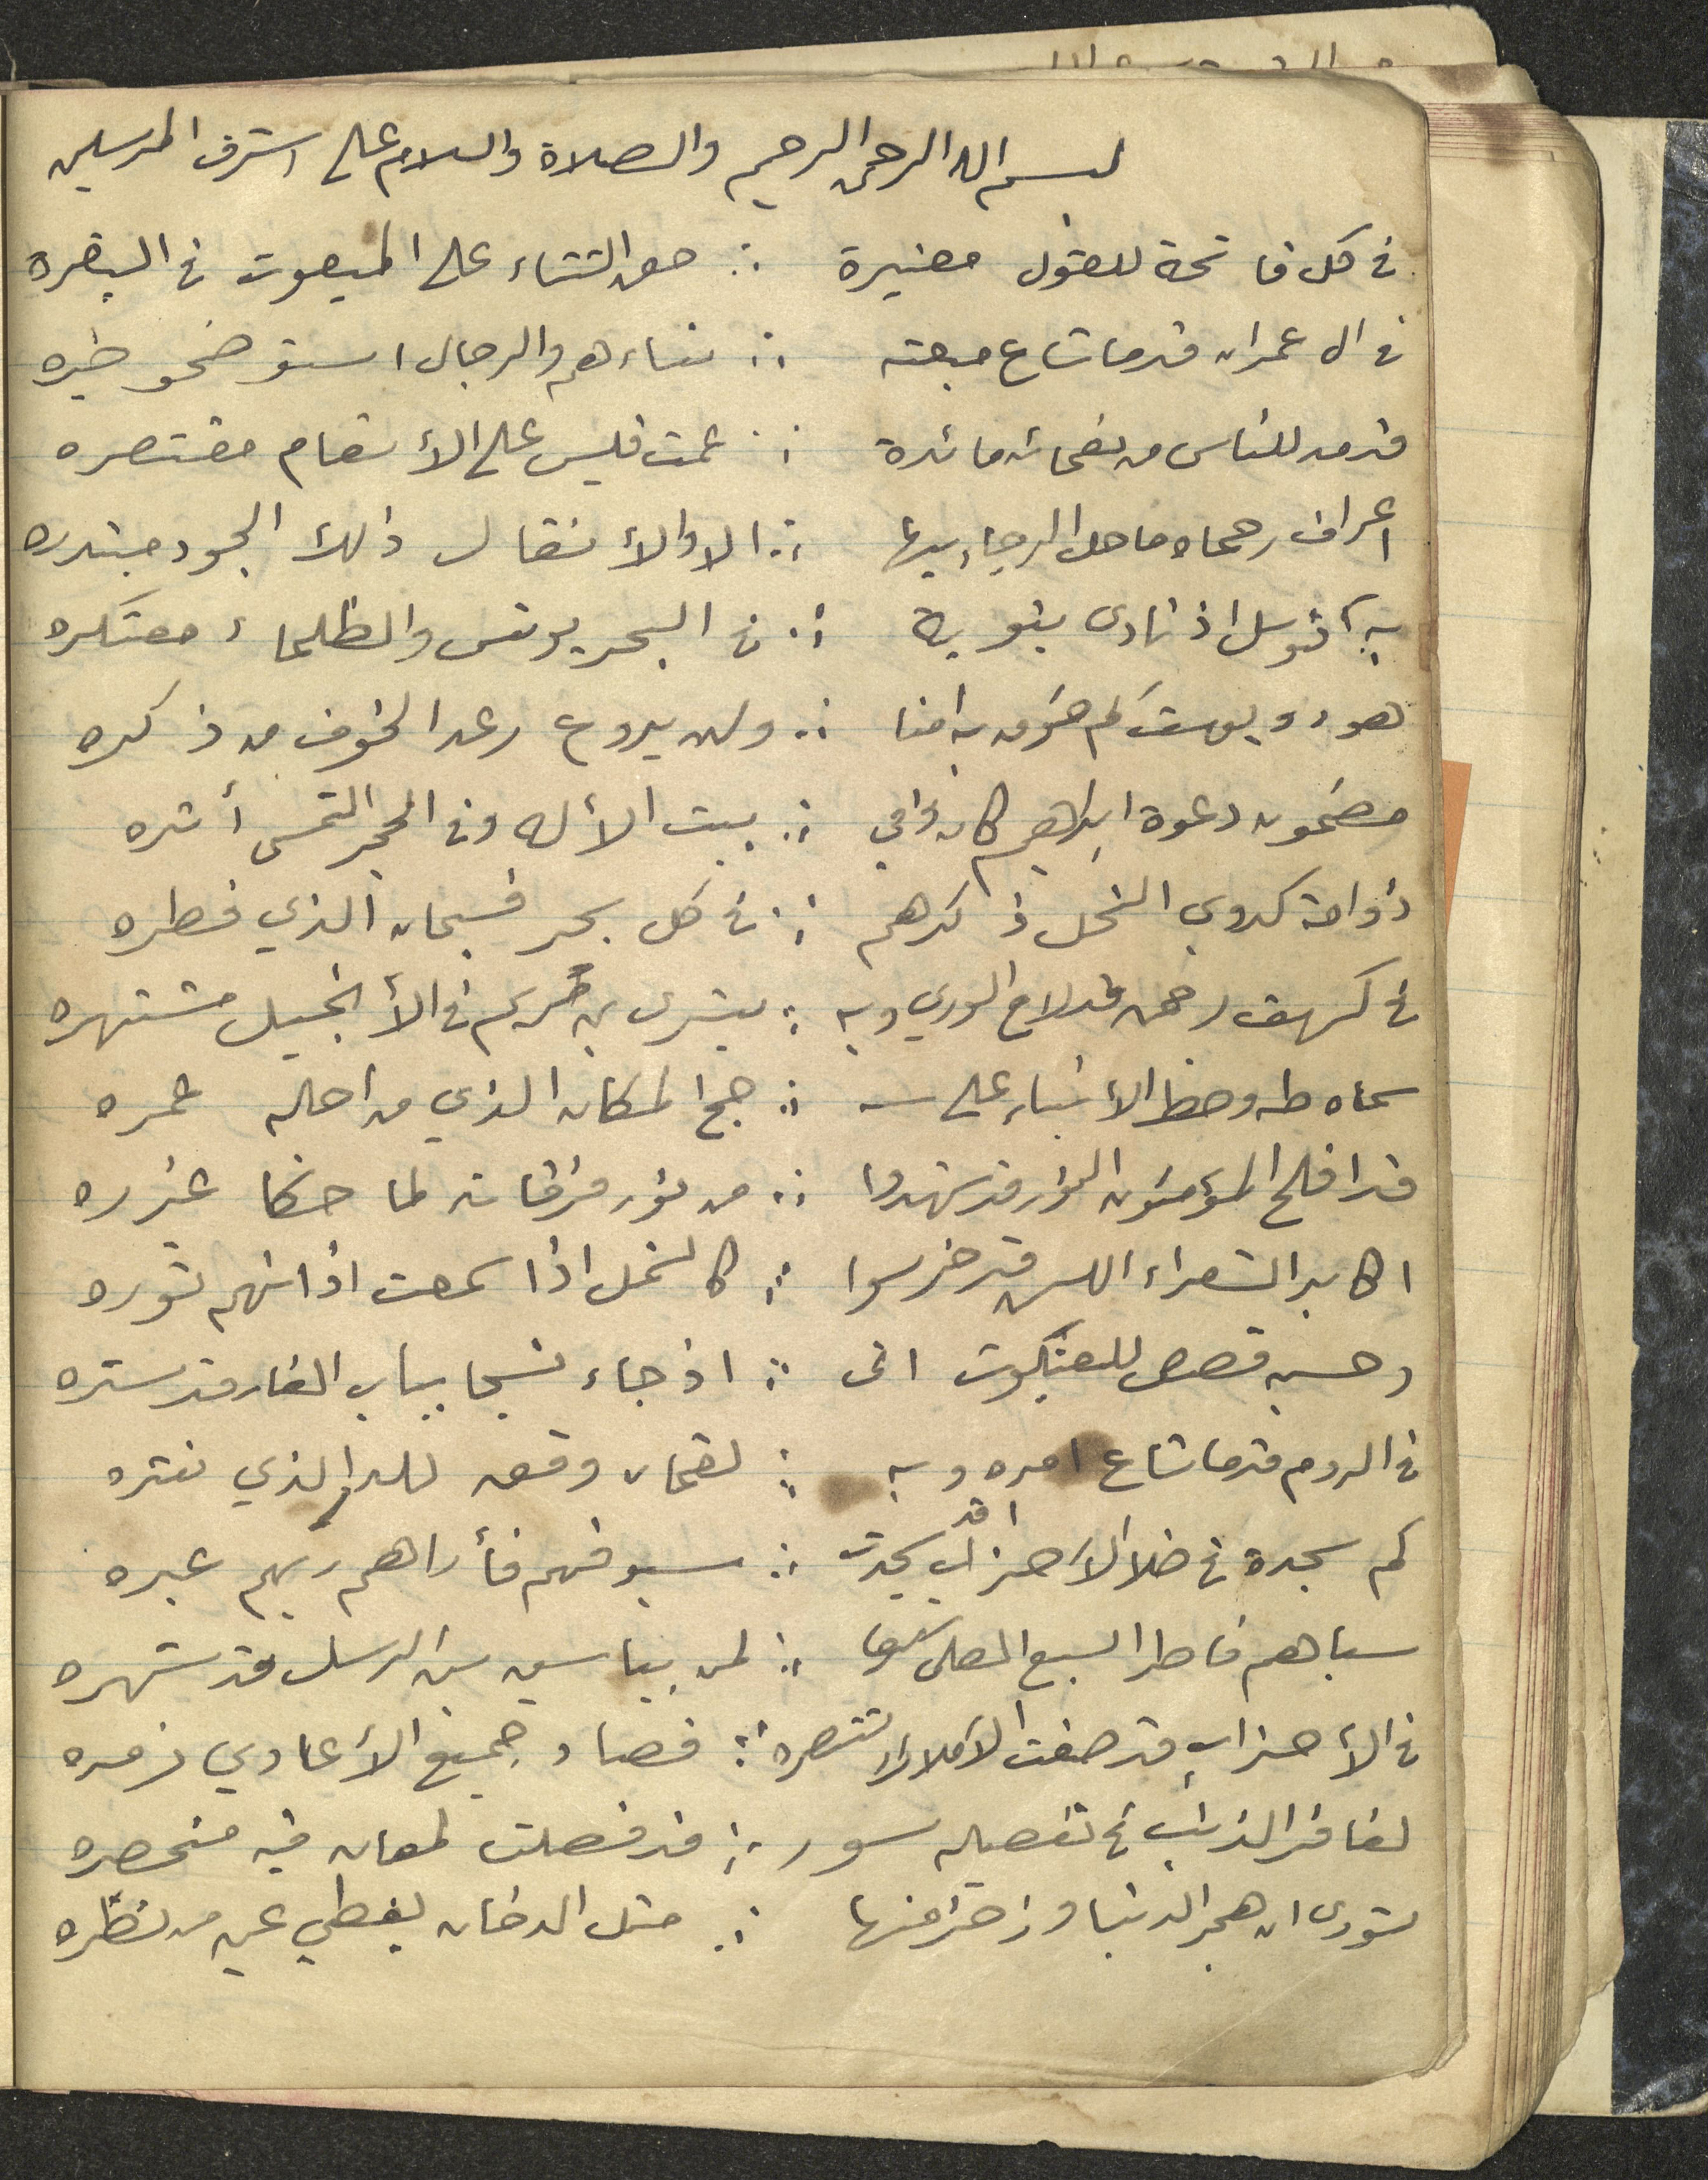 بسم الله الرحمن الرحيم والصلاة والسلام على اشرف المرسلين
في كل فاتحة للقول معتبرة ∴ حق الثناء على المبعوث في البقره
في ال عمران قدما شاع مبعثه ∴ نساءهم والرجال استوضحو خبره
قد مد للناس من نعمائه مائدة ∴ عمت فليس على الأنعام مقتصره
اعراف رحماه ما حل الرجاء بها ∴ الا والأنفال ذلك الجود مبتدره
به توسل اذ نادى بتوبة ∴ في البحر يونس والظلماء معتكره
هود ويوسف كم خوف به امنا ∴ ولن يروع رعد الخوف من ذكره
مضمون دعوة ابراهيم كان وفي ∴ بيت الأله وفي الحجر التمس أثره
ذو امة كدوي النحل ذكرهم ∴ في كل بحر فسبحان الذي فطره
في كهف رحمن قد لاح الوري وبه ∴ بشرى بن مريم في الأنجيل مشتهره
سماه طه وحظ الأنبياء على ∴ حج المكان الذي من اجله عمره
قد افلح المؤمنون النور قد شهدوا ∴ من نور فرقانه لما حكا غرره
اكابر الشعراء اللسن قد خرسوا ∴ كالنمل اذا سمعت اذانهم سوره
وحسبه قصص للعنكبوت اتى ∴ اذ جاء نسجا بباب الغار قد ستره
في الروم قدما شاع امره وبه ∴ لقمان وفق للدر الذي نثره
كم سجدة في ضلال الأحزاب قد سجدت ∴ سيوفهم فأراهم ربهم عبره
سباهم فاطر السبع العلى ∴ لمن بياسين بين الرسل قد شهره
في الأحزاب قد صفت الأملاك تنصره ∴ فصاد جميع الأعادي زمره
لغافر الذنب في تفصيله سور ∴ قد فصلت لمعان فيه منحصره
شورى ان هجر الدنيا وزخرفها ∴ مثل الدخان يغطي عين من نظره